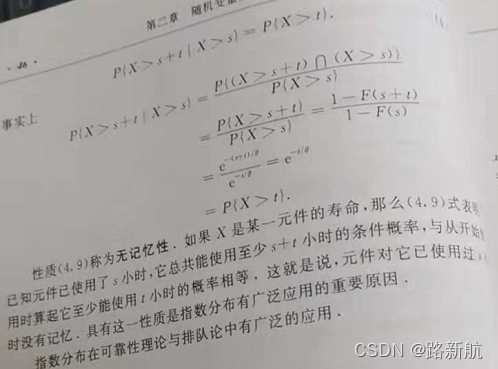 · 46 ·
第二章 随机变量
P{X>s+t | X>s} = P{X>t}.
事实上
P{X>s+t | X>s} = P{(X>s+t) ⋂ (X>s)} / P{X>s}
= P{X>s+t} / P{X>s} = 1-F(s+t) / 1-F(s)
= e^{-(s+t)/θ} / e^{-s/θ} = e^{-t/θ}
= P{X>t}.
性质(4.9)称为无记忆性. 如果 X 是某一元件的寿命, 那么(4.9)式表明
已知元件已使用了 s 小时, 它总共能使用至少 s+t 小时的条件概率, 与从开始
用时算起它至少能使用 t 小时的概率相等. 这就是说, 元件对它已使用过 s
时没有记忆. 具有这一性质是指数分布有广泛应用的重要原因.
指数分布在可靠性理论与排队论中有广泛的应用.
CSDN @路新航